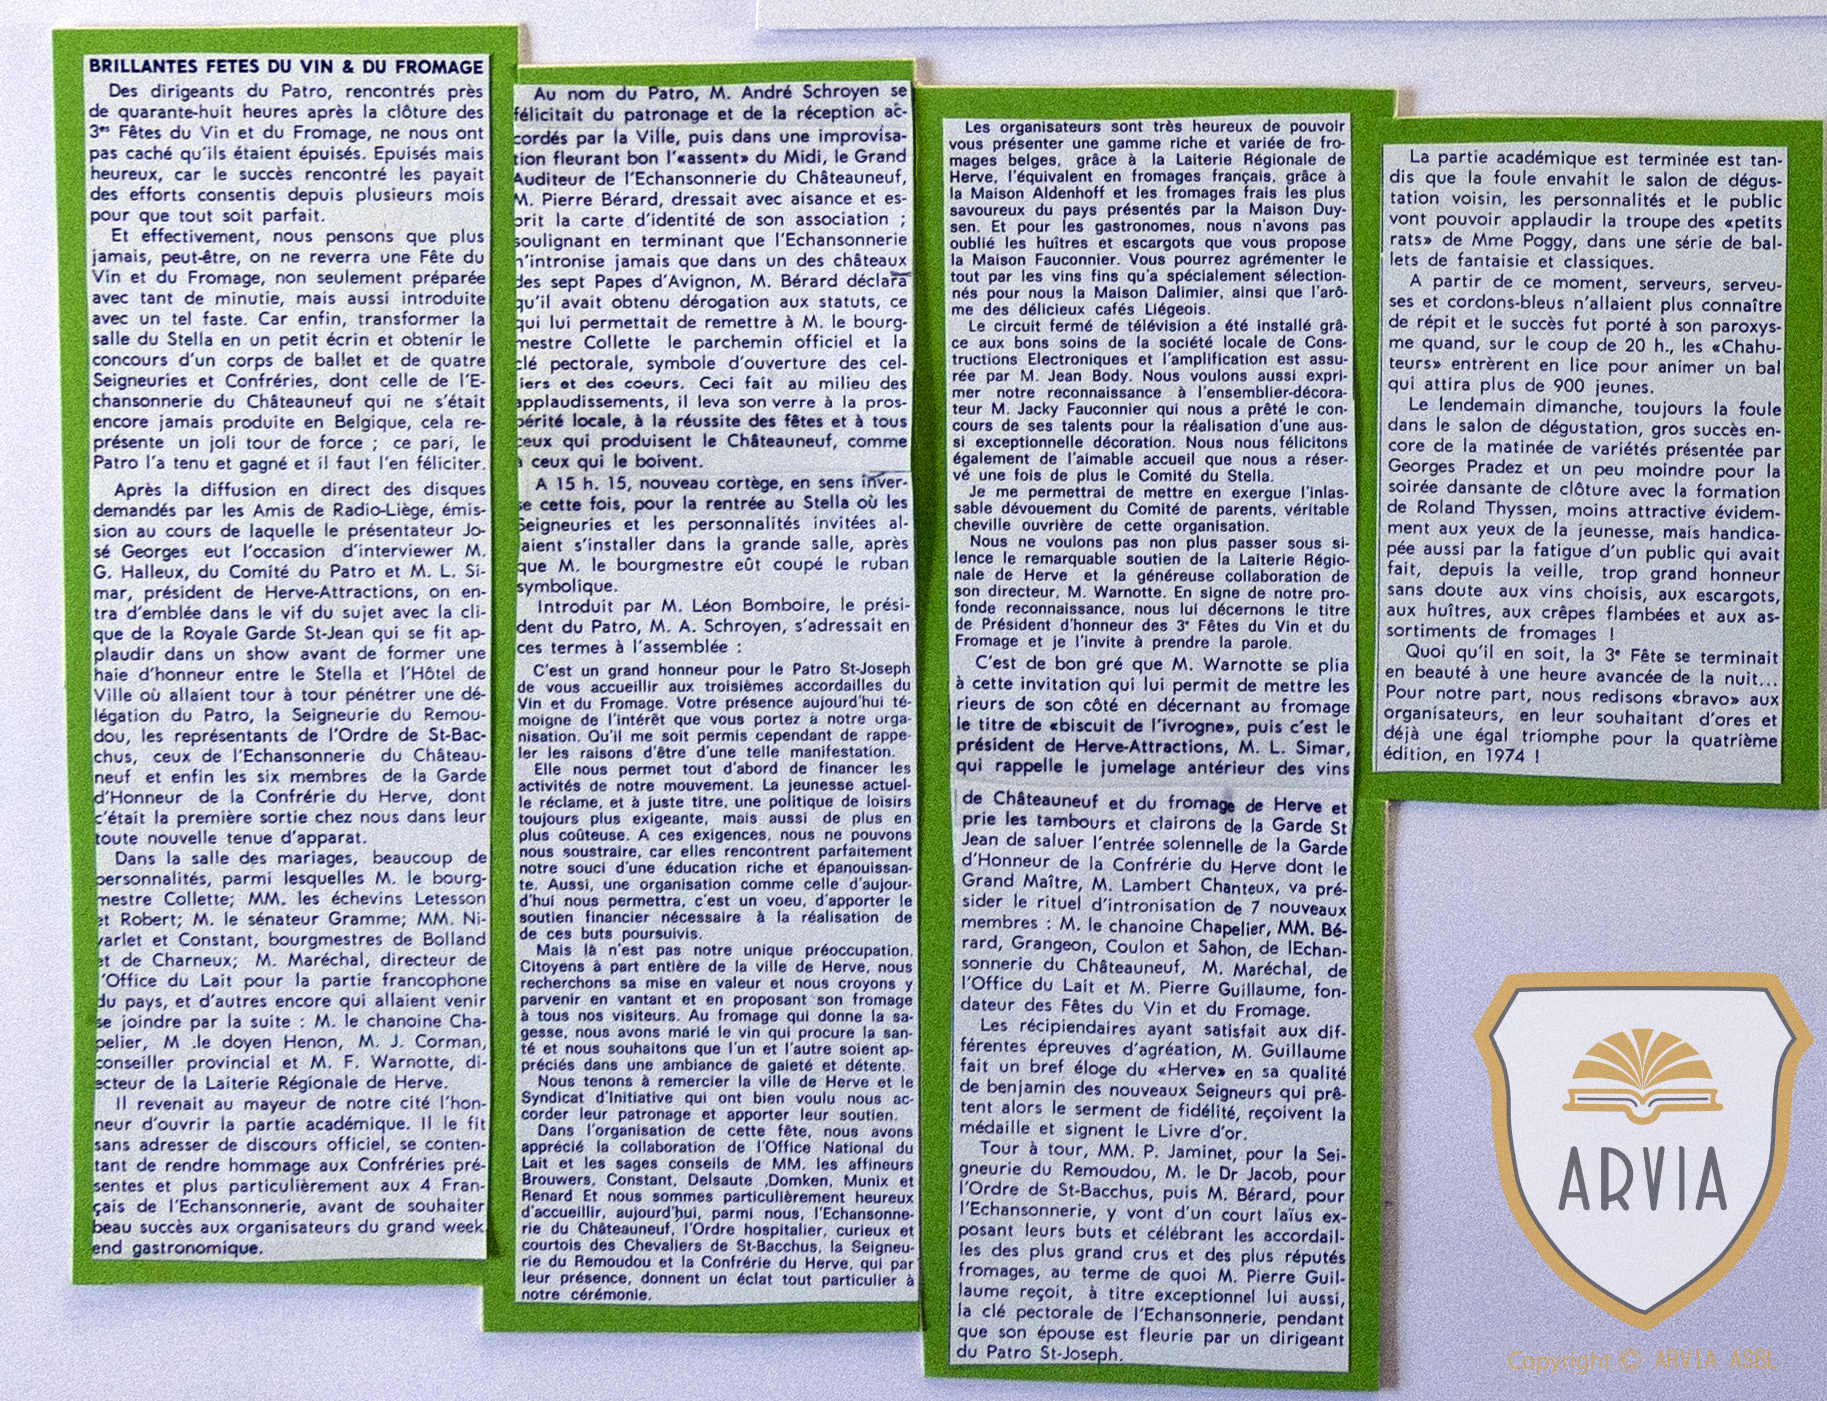 BRILLANTES FETES DU VIN & DU FROMAGE
Des dirigeants du Patro, rencontrés près
de quarante-huit heures après la clôture des
3es Fêtes du Vin et du Fromage, ne nous ont
pas caché qu'ils étaient épuisés. Epuisés mais
heureux, car le succès rencontré les payait
des efforts consentis depuis plusieurs mois
pour que tout soit parfait.
Et effectivement, nous pensons que plus
jamais, peut-être, on ne reverra une Fête du
Vin et du Fromage, non seulement préparée
avec tant de minutie, mais aussi introduite
avec un tel faste. Car enfin, transformer la
salle du Stella en un petit écrin et obtenir le
concours d'un corps de ballet et de quatre
Seigneuries et Confréries, dont celle de l'E-
chansonnerie du Châteauneuf qui ne s'était
encore jamais produite en Belgique, cela re-
présente un joli tour de force ; ce pari, le
Patro l'a tenu et gagné et il faut l'en féliciter.
Après la diffusion en direct des disques
demandés par les Amis de Radio-Liège, émis-
sion au cours de laquelle le présentateur Jo-
sé Georges eut l'occasion d'interviewer M.
G. Halleux, du Comité du Patro et M. L. Si-
mar, président de Herve-Attractions, on en-
tra d'emblée dans le vif du sujet avec la cli-
que de la Royale Garde St-Jean qui se fit ap-
plaudir dans un show avant de former une
haie d'honneur entre le Stella et l'Hôtel de
Ville où allaient tour à tour pénétrer une dé-
légation du Patro, la Seigneurie du Remou-
dou, les représentants de l'Ordre de St-Bac-
chus, ceux de l'Echansonnerie du Château-
neuf et enfin les six membres de la Garde
d'Honneur de la Confrérie du Herve, dont
c'était la première sortie chez nous dans leur
toute nouvelle tenue d'apparat.
Dans la salle des mariages, beaucoup de
personnalités, parmi lesquelles M. le bourg-
mestre Collette; MM. les échevins Letesson
et Robert; M. le sénateur Gramme; MM. Ni-
varlet et Constant, bourgmestres de Bolland
et de Charneux; M. Maréchal, directeur de
l'Office du Lait pour la partie francophone
du pays, et d'autres encore qui allaient venir
se joindre par la suite : M. le chanoine Cha-
pelier, M .le doyen Henon, M. J. Corman,
conseiller provincial et M. F. Warnotte, di-
ecteur de la Laiterie Régionale de Herve.
Il revenait au mayeur de notre cité l'hon-
neur d'ouvrir la partie académique. Il le fit
sans adresser de discours officiel, se conten-
tant de rendre hommage aux Confréries pré-
sentes et plus particulièrement aux 4 Fran-
çais de l'Echansonnerie, avant de souhaiter
beau succès aux organisateurs du grand week
end gastronomique.
Au nom du Patro, M. André Schroyen se
félicitait du patronage et de la réception ac-
cordés par la Ville, puis dans une improvisa-
tion fleurant bon l'«assent» du Midi, le Grand
Auditeur de l'Echansonnerie du Châteauneuf,
M. Pierre Bérard, dressait avec aisance et es-
prit la carte d'identité de son association ;
soulignant en terminant que l'Echansonnerie
n'intronise jamais que dans un des châteaux
des sept Papes d'Avignon, M. Bérard déclara
qu'il avait obtenu dérogation aux statuts, ce
qui lui permettait de remettre à M. le bourg-
mestre Collette le parchemin officiel et la
clé pectorale, symbole d'ouverture des cel-
liers et des coeurs. Ceci fait au milieu des
applaudissements, il leva son verre à la pros-
périté locale, à la réussite des fêtes et à tous
ceux qui produisent le Châteauneuf, comme
à ceux qui le boivent.
A 15 h. 15, nouveau cortège, en sens inver-
se cette fois, pour la rentrée au Stella où les
Seigneuries et les personnalités invitées al-
laient s'installer dans la grande salle, après
que M. le bourgmestre eût coupé le ruban
symbolique.
Introduit par M. Léon Bomboire, le prési-
dent du Patro, M. A. Schroyen, s'adressait en
ces termes à l'assemblée :
C'est un grand honneur pour le Patro St-Joseph
de vous accueillir aux troisièmes accordailles du
Vin et du Fromage. Votre présence aujourd'hui té-
moigne de l'intérêt que vous portez à notre orga-
nisation. Qu'il me soit permis cependant de rappe-
ler les raisons d'être d'une telle manifestation.
Elle nous permet tout d'abord de financer les
activités de notre mouvement. La jeunesse actuel-
le réclame, et à juste titre, une politique de loisirs
toujours plus exigeante, mais aussi de plus en
plus coûteuse. A ces exigences, nous ne pouvons
nous soustraire, car elles rencontrent parfaitement
notre souci d'une éducation riche et épanouissan-
te. Aussi, une organisation comme celle d'aujour-
d'hui nous permettra, c'est un voeu, d'apporter le
soutien financier nécessaire à la réalisation de
de ces buts poursuivis.
Mais là n'est pas notre unique préoccupation.
Citoyens à part entière de la ville de Herve, nous
recherchons sa mise en valeur et nous croyons y
parvenir en vantant et en proposant son fromage
à tous nos visiteurs. Au fromage qui donne la sa-
gesse, nous avons marié le vin qui procure la san-
té et nous souhaitons que l'un et l'autre soient ap-
préciés dans une ambiance de gaieté et détente.
Nous tenons à remercier la ville de Herve et le
Syndicat d'Initiative qui ont bien voulu nous ac-
corder leur patronage et apporter leur soutien.
Dans l'organisation de cette fête, nous avons
apprécié la collaboration de l'Office National du
Lait et les sages conseils de MM. les affineurs
Brouwers, Constant, Delsaute ,Domken, Munix et
Renard Et nous sommes particulièrement heureux
d'accueillir, aujourd'hui, parmi nous, l'Echansonne-
rie du Châteauneuf, l'Ordre hospitalier, curieux et
courtois des Chevaliers de St-Bacchus, la Seigneu-
rie du Remoudou et la Confrérie du Herve, qui par
leur présence, donnent un éclat tout particulier à
notre cérémonie.
Les organisateurs sont très heureux de pouvoir
vous présenter une gamme riche et variée de fro-
mages belges, grâce à la Laiterie Régionale de
Herve, l'équivalent en fromages français, grâce à
la Maison Aldenhoff et les fromages frais les plus
savoureux du pays présentés par la Maison Duy-
sen. Et pour les gastronomes, nous n'avons pas
oublié les huîtres et escargots que vous propose
la Maison Fauconnier. Vous pourrez agrémenter le
tout par les vins fins qu'a spécialement sélection-
nés pour nous la Maison Dalimier, ainsi que l'arô-
me des délicieux cafés Liégeois.
Le circuit fermé de télévision a été installé grâ-
ce aux bons soins de la société locale de Cons-
tructions Electroniques et l'amplification est assu-
rée par M. Jean Body. Nous voulons aussi expri-
mer notre reconnaissance à l'ensemblier-décora-
teur M. Jacky Fauconnier qui nous a prêté le con-
cours de ses talents pour la réalisation d'une aus-
si exceptionnelle décoration. Nous nous félicitons
également de l'aimable accueil que nous a réser-
vé une fois de plus le Comité du Stella.
Je me permettrai de mettre en exergue l'inlas-
sable dévouement du Comité de parents, véritable
cheville ouvrière de cette organisation.
Nous ne voulons pas non plus passer sous si-
lence le remarquable soutien de la Laiterie Régio-
nale de Herve et la généreuse collaboration de
son directeur, M. Warnotte. En signe de notre pro-
fonde reconnaissance, nous lui décernons le titre
de Président d'honneur des 3e Fêtes du Vin et du
Fromage et je l'invite à prendre la parole.
C'est de bon gré que M. Warnotte se plia
à cette invitation qui lui permit de mettre les
rieurs de son côté en décernant au fromage
le titre de «biscuit de l'ivrogne», puis c'est le
président de Herve-Attractions, M. L. Simar,
qui rappelle le jumelage antérieur des vins
de Châteauneuf et du fromage de Herve et
prie les tambours et clairons de la Garde St
Jean de saluer l'entrée solennelle de la Garde
d'Honneur de la Confrérie du Herve dont le
Grand Maître, M. Lambert Chanteux, va pré-
sider le rituel d'intronisation de 7 nouveaux
membres : M. le chanoine Chapelier, MM. Bé-
rard, Grangeon, Coulon et Sahon, de lEchan-
sonnerie du Châteauneuf, M. Maréchal, de
l'Office du Lait et M. Pierre Guillaume, fon-
dateur des Fêtes du Vin et du Fromage.
Les récipiendaires ayant satisfait aux dif-
férentes épreuves d'agréation, M. Guillaume
fait un bref éloge du «Herve» en sa qualité
de benjamin des nouveaux Seigneurs qui prê-
tent alors le serment de fidélité, reçoivent la
médaille et signent le Livre d'or.
Tour à tour, MM. P. Jaminet, pour la Sei-
gneurie du Remoudou, M. le Dr Jacob, pour
l'Ordre de St-Bacchus, puis M. Bérard, pour
l'Echansonnerie, y vont d'un court laïus ex-
posant leurs buts et célébrant les accordail-
les des plus grand crus et des plus réputés
fromages, au terme de quoi M. Pierre Guil-
laume reçoit, à titre exceptionnel lui aussi,
la clé pectorale de l'Echansonnerie, pendant
que son épouse est fleurie par un dirigeant
du Patro St-Joseph.
La partie académique est terminée est tan-
dis que la foule envahit le salon de dégus-
tation voisin, les personnalités et le public
vont pouvoir applaudir la troupe des «petits
rats» de Mme Poggy, dans une série de bal-
lets de fantaisie et classiques.
A partir de ce moment, serveurs, serveu-
ses et cordons-bleus n'allaient plus connaître
de répit et le succès fut porté à son paroxys-
me quand, sur le coup de 20 h., les «Chahu-
teurs» entrèrent en lice pour animer un bal
qui attira plus de 900 jeunes.
Le lendemain dimanche, toujours la foule
dans le salon de dégustation, gros succès en-
core de la matinée de variétés présentée par
Georges Pradez et un peu moindre pour la
soirée dansante de clôture avec la formation
de Roland Thyssen, moins attractive évidem-
ment aux yeux de la jeunesse, mais handica-
pée aussi par la fatigue d'un public qui avait
fait, depuis la veille, trop grand honneur
sans doute aux vins choisis, aux escargots,
aux huîtres, aux crêpes flambées et aux as-
sortiments de fromages !
Quoi qu'il en soit, la 3e Fête se terminait
en beauté à une heure avancée de la nuit...
Pour notre part, nous redisons «bravo» aux
organisateurs, en leur souhaitant d'ores et
déjà une égal triomphe pour la quatrième
édition, en 1974 !
ARVIA
Copyright © ARVIA ASBL